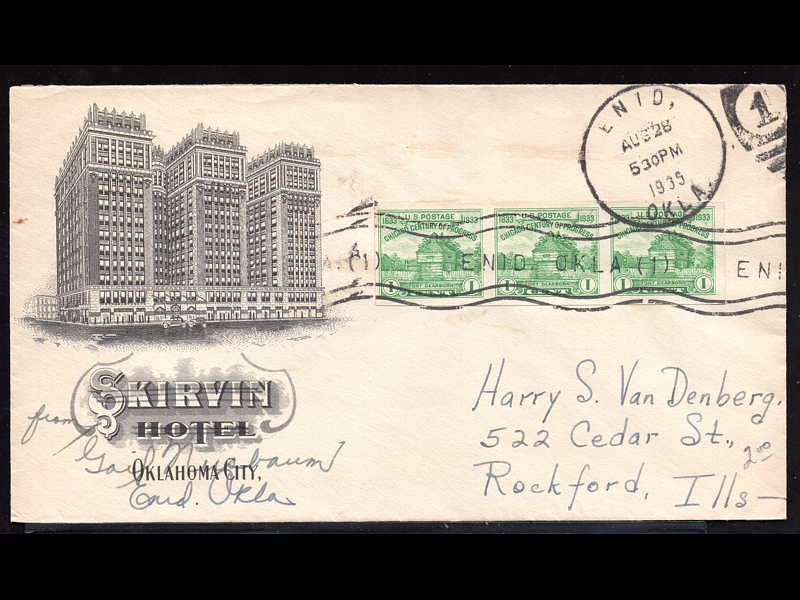 ENID,
AUG 28
5 30 PM
1935
OKLA.
1
1833 U.S. POSTAGE 1933
CHICAGO CENTURY OF PROGRESS
FORT DEARBORN
1 CENT 1
1833 U.S. POSTAGE 1933
CHICAGO CENTURY OF PROGRESS
FORT DEARBORN
1 CENT 1
1833 U.S. POSTAGE 1933
CHICAGO CENTURY OF PROGRESS
FORT DEARBORN
1 CENT 1
A. (1) ENID, OKLA. (1) ENI
SKIRVIN
HOTEL
OKLAHOMA CITY,
from
Gail
Enid. Okla
Harry S. Van Denberg,
522 Cedar St.,
Rockford, Ills—
2.00